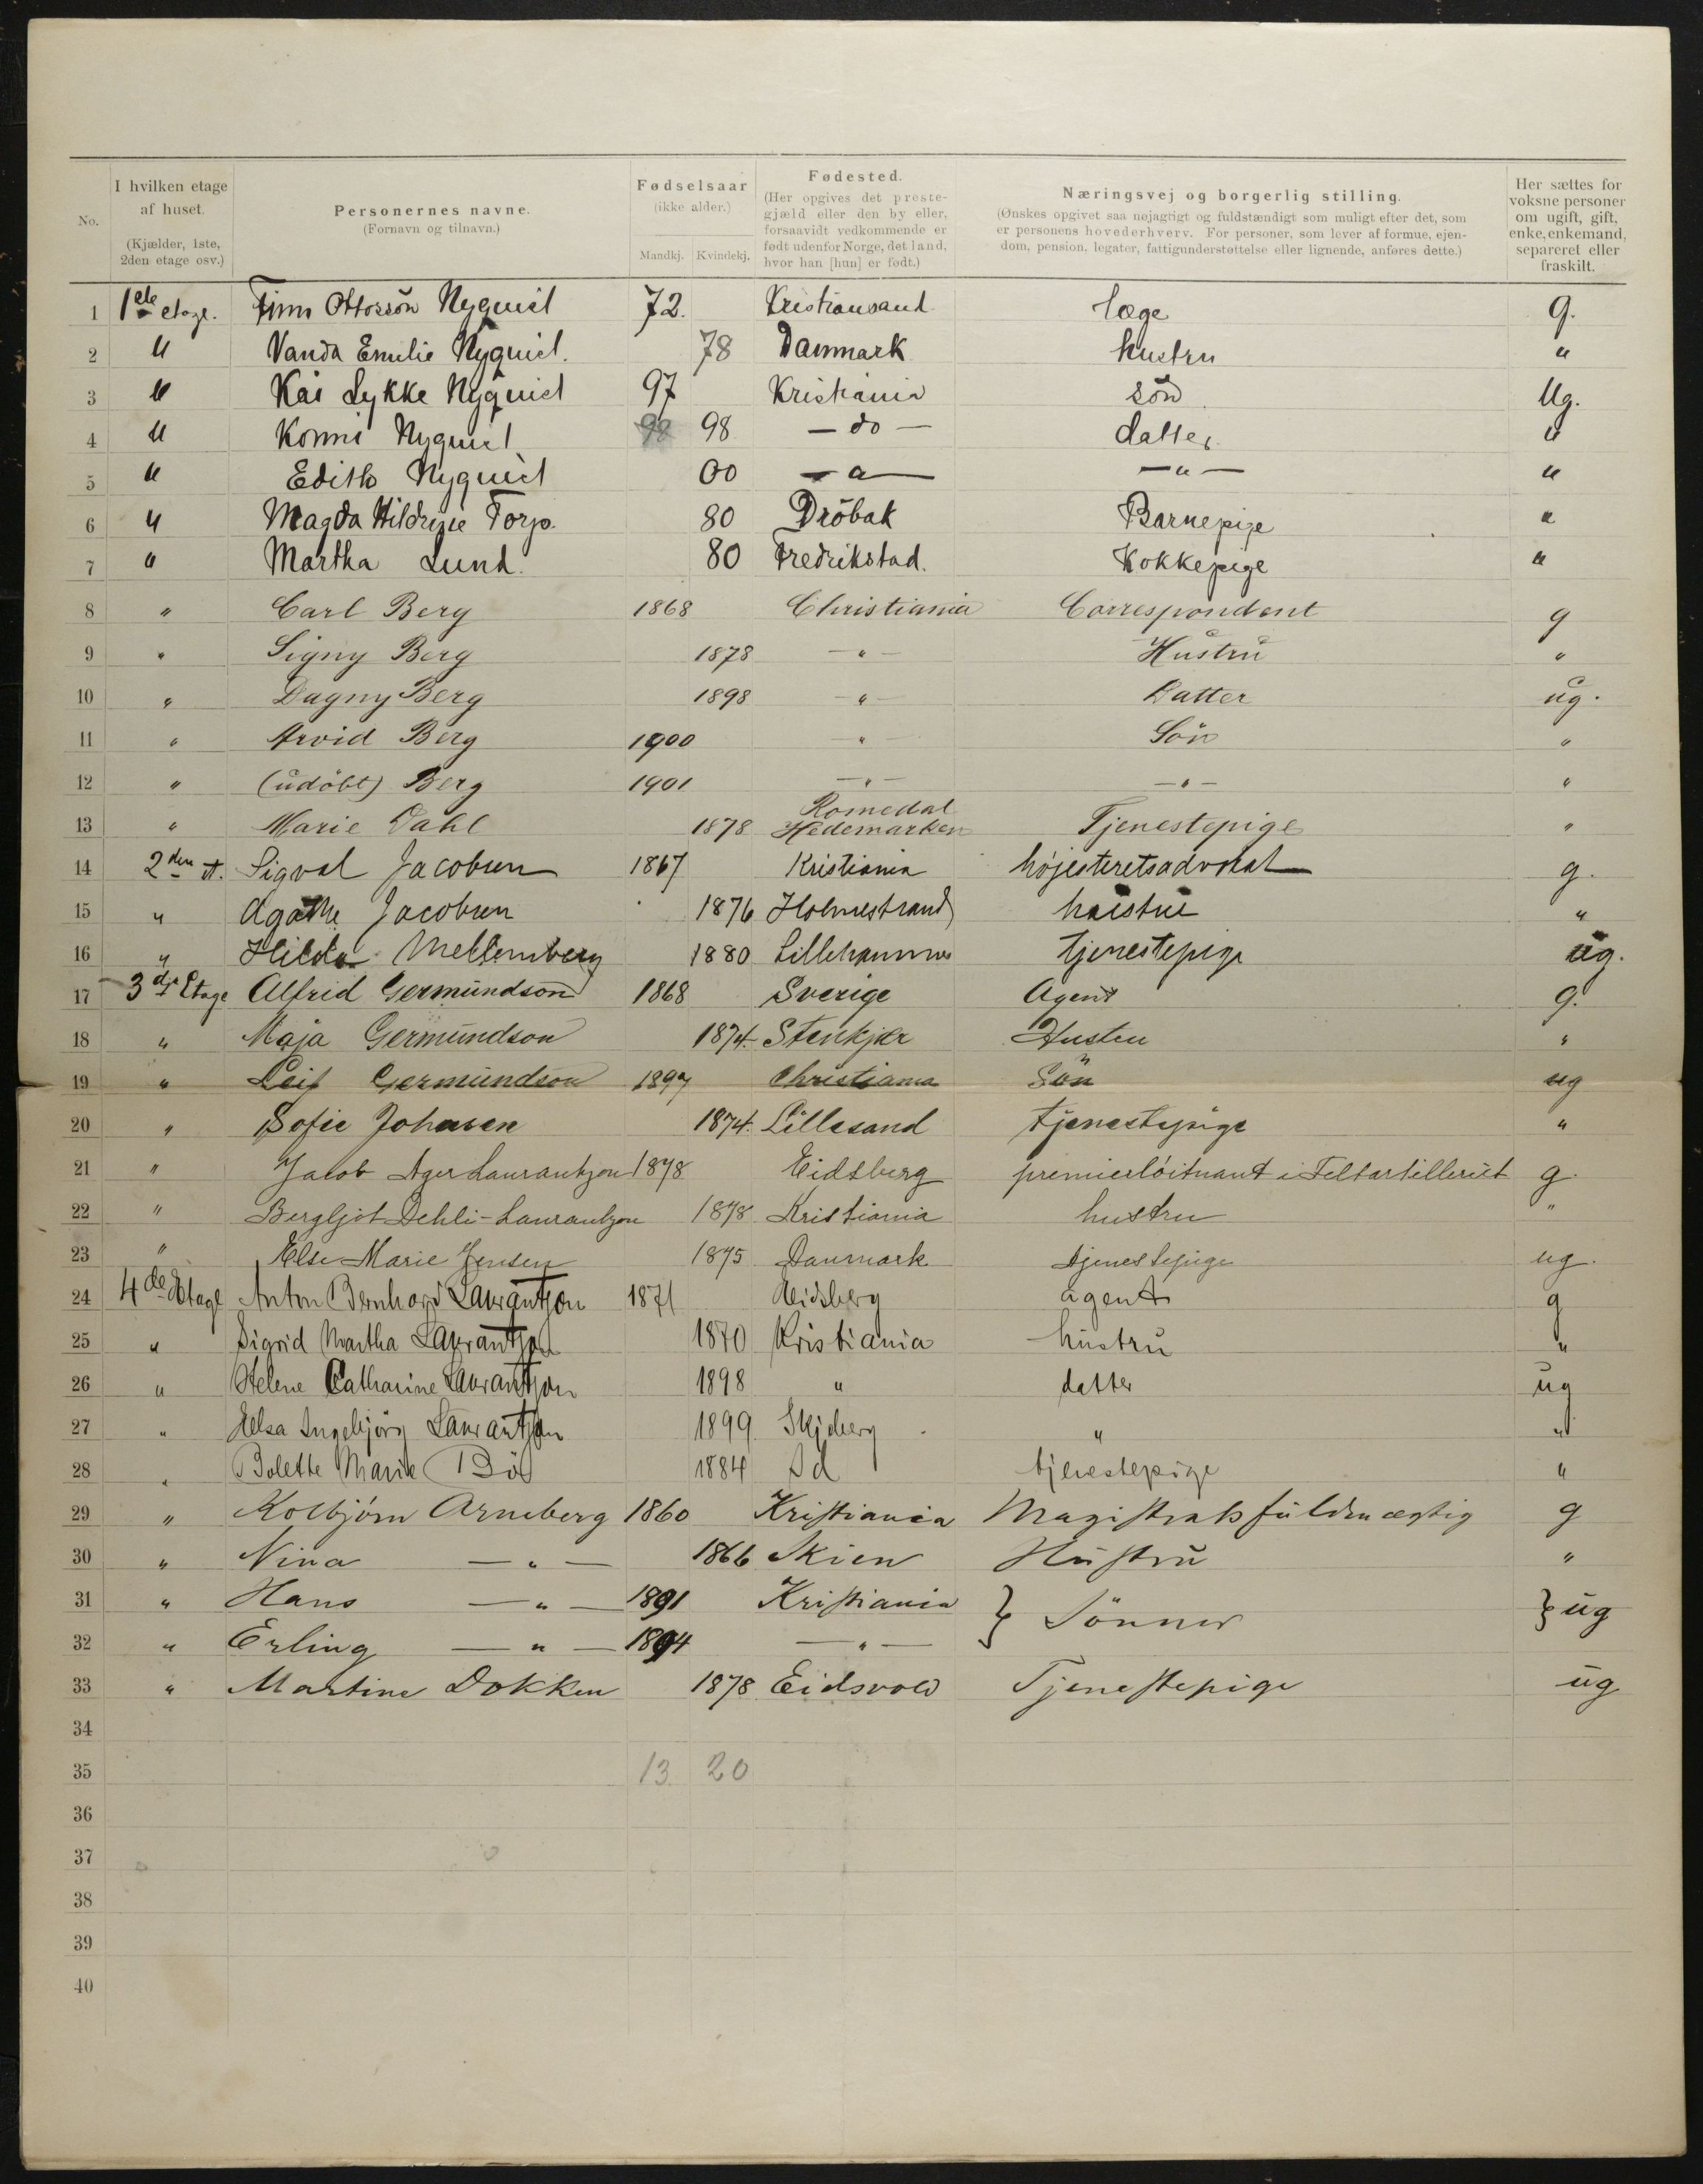 No.
I hvilken etage af huset. (Kjælder, 1ste, 2den etage osv.)
Personernes navne. (Fornavn og tilnavn.)
Fødselsaar (ikke alder.) Mandkj. Kvindekj.
Fødested. (Her opgives det prestegjæld eller den by eller, forsaavidt vedkommende er født udenfor Norge, det land, hvor han [hun] er født.)
Næringsvej og borgerlig stilling. (Ønskes opgivet saa nøjagtigt og fuldstændigt som muligt efter det, som er personens hovederhverv. For personer, som lever af formue, ejendom, pension, legater, fattigunderstøttelse eller lignende, anføres dette.)
Her sættes for voksne personer om ugift, gift, enke, enkemand, separeret eller fraskilt.
1 1ste etage. Finn Ottossön Nyquist 72. Kristiansand læge g.
2 " Vanda Emilie Nyquist. 78 Danmark hustru "
3 " Kai Lykke Nyquist 97 Kristiania sön Ug.
4 " Konni Nyquist 98 98 — do — datter "
5 " Edith Nyquist 00 — " — — " — "
6 " Magda Torp. 80 Dröbak Barnepige "
7 " Martha Lund. 80 Fredrikstad. Kokkepige "
8 " Carl Berg 1868 Christiania Correspondent g
9 " Signy Berg 1878 — " — Hustru "
10 " Dagny Berg 1898 — " — Datter ug.
11 " Arvid Berg 1900 — " — Sön "
12 " (udöbt) Berg 1901 — " — — " — "
13 " Marie Dahl 1878 Romedal Hedemarken Tjenestepige "
14 2den et. Sigval Jacobsen 1867 Kristiania højesteretsadvokat g.
15 " Agathe Jacobsen 1876 Holmestrand hustru "
16 " Hilda Mellemberg 1880 Lillehammer tjenestepige ug.
17 3die Etage Alfrid Germundson 1868 Sverige Agent g.
18 " Maja Germundson 1874. Stenkjær Hustru "
19 " Leif Germundson 1897 Christiania Sön ug
20 " Sofie Johnsen 1874. Lillesand tjenestepige "
21 " Jacob Ager Laurantzon 1878 Eidsberg premierlöitnant i Feltartilleriet g.
22 " Bergljot Dehli-Laurantzon 1878 Kristiania hustru "
23 " Else Marie Jensen 1875 Danmark tjenestepige ug.
24 4de Etage Anton Bernhard Laurantzon 1871 Eidsberg agent g
25 " Sigrid Martha Laurantzon 1870 Kristiania hustru "
26 " Helene Catharine Laurantzon 1898 " datter ug
27 " Elsa Ingebjörg Laurantzon 1899 Skjeberg " "
28 " Bolette Marie Bö 1884 Id tjenestepige "
29 " Kolbjörn Arneberg 1860 Kristiania Magistratsfuldmægtig g
30 " Nina — " — 1866 Skien Hustru "
31 " Hans — " — 1891 Kristiania } Sönner } ug
32 " Erling — " — 1894 — " —
33 " Martine Dokken 1878 Eidsvold Tjenestepige ug
34
35 13 20
36
37
38
39
40